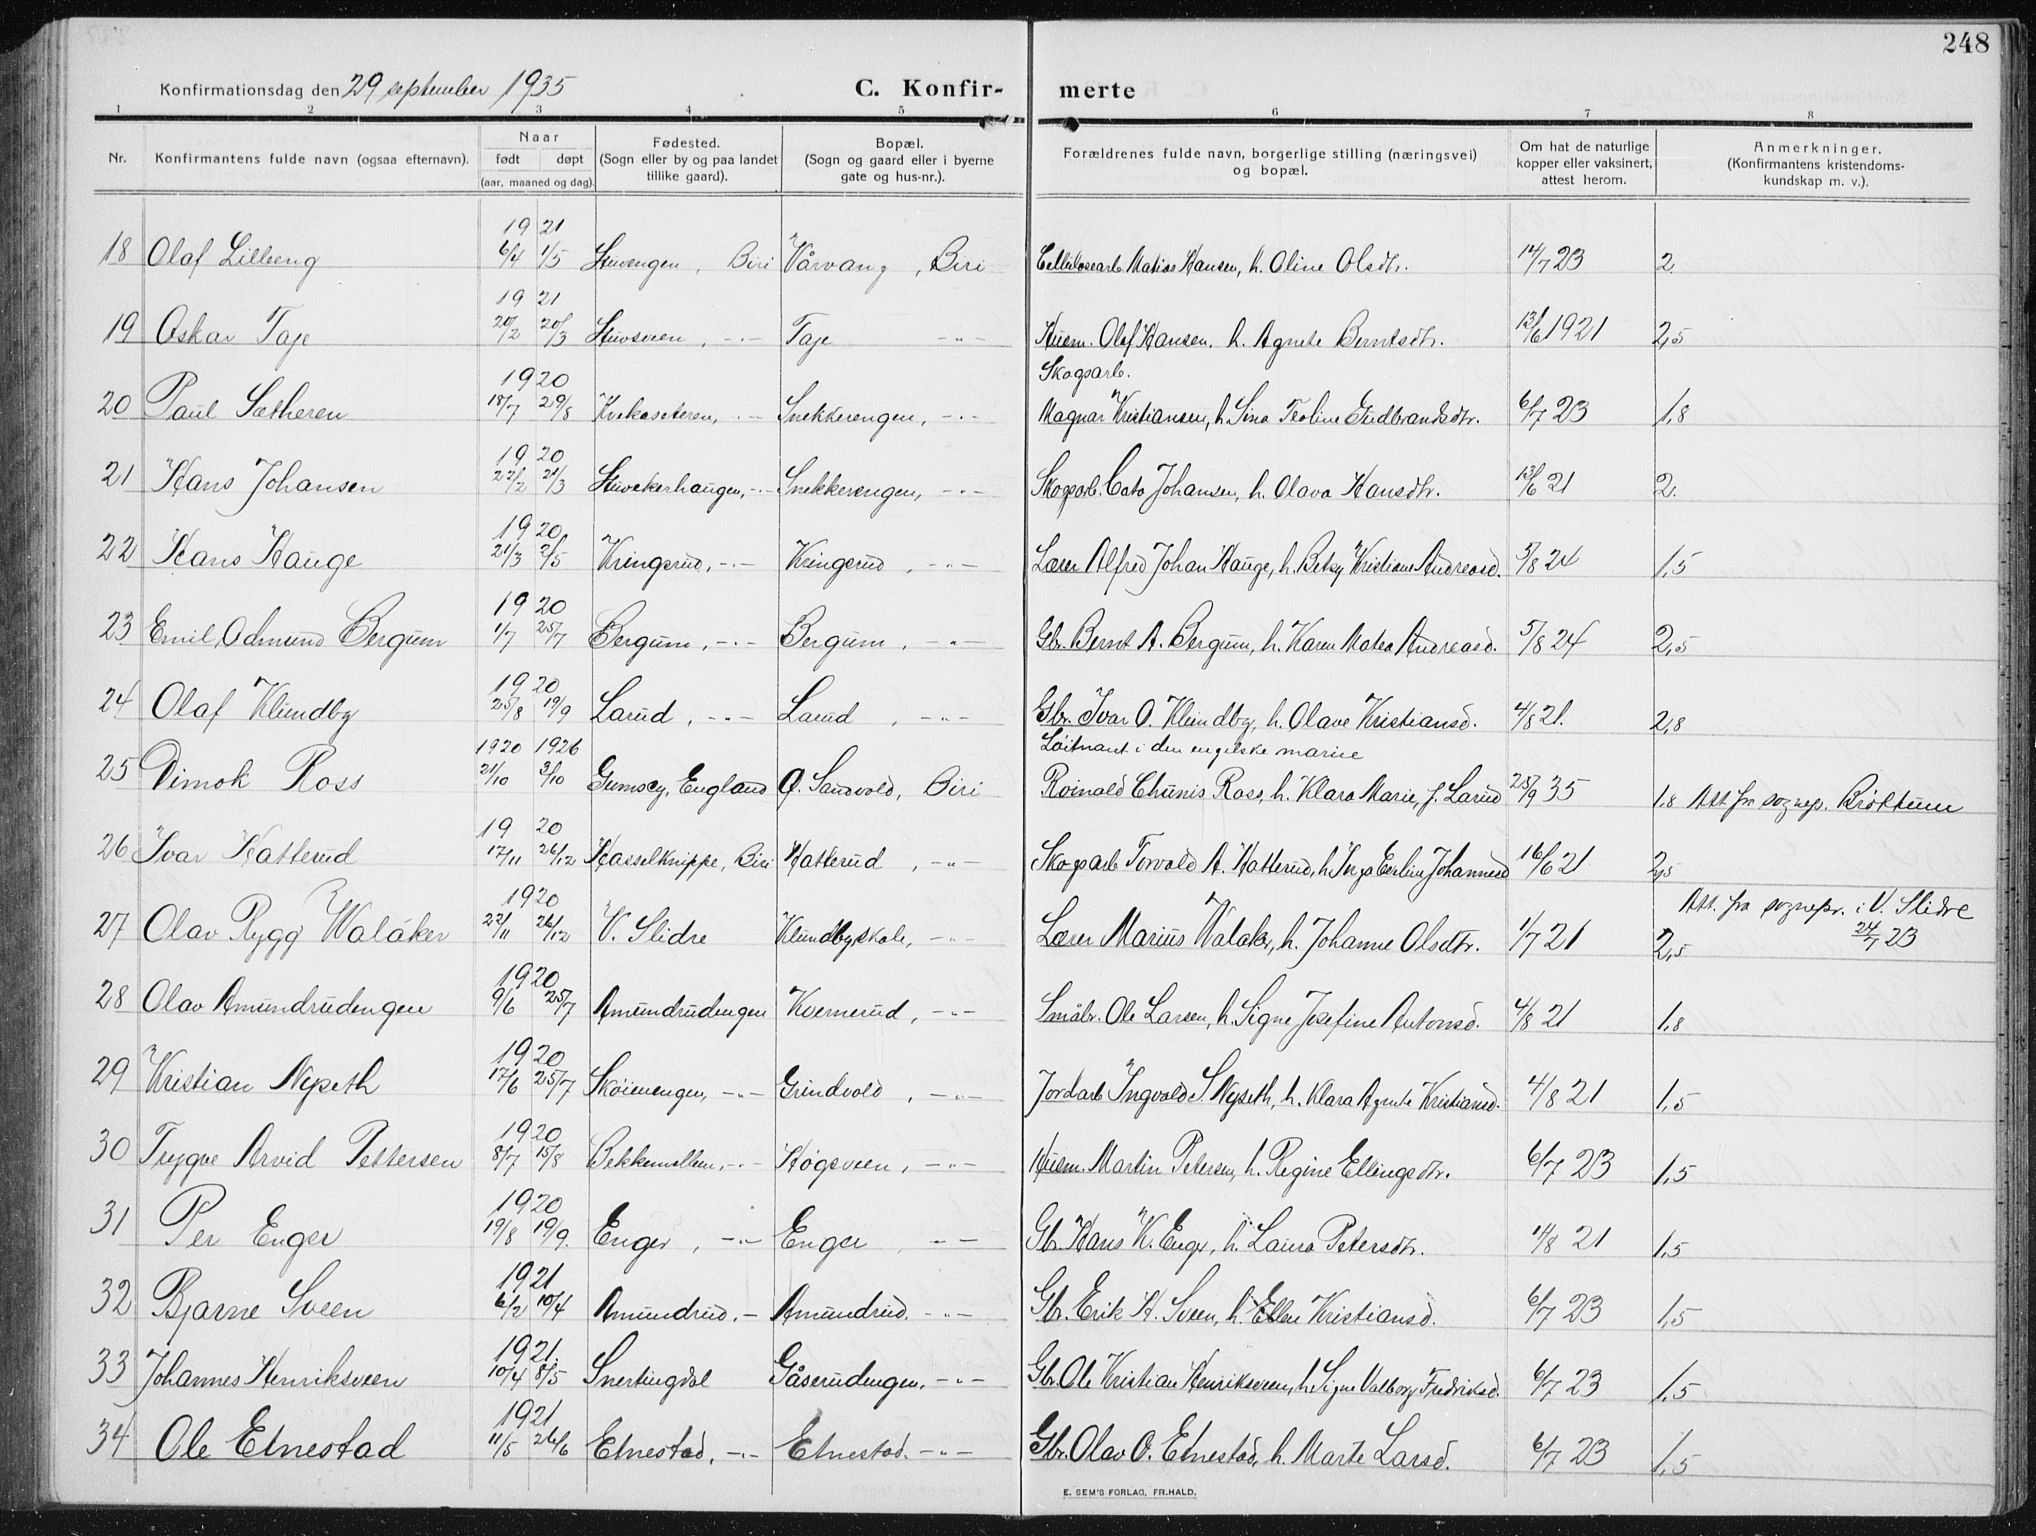 248
Konfirmationsdag den 29 september 1935 C. Konfir- merte
1 2 3 4 5 6 7 8
Nr. Konfirmantens fulde navn (ogsaa efternavn). Naar født døpt (aar, maaned og dag). Fødested. (Sogn eller by og paa landet tillike gaard). Bopæl. (Sogn og gaard eller i byerne gate og hus-nr.). Forældrenes fulde navn, borgerlige stilling (næringsvei) og bopæl. Om hat de naturlige kopper eller vaksinert, attest herom. Anmerkninger. (Konfirmantens kristendoms-kundskap m. v.).
19 21
18 Olaf Lilleeng 6/4 1/5 Stuvengen, Biri Vårvang, Biri Cellulosearb. Matias Hansen, h. Oline Olsdtr. 14/7 23 2
19 21
19 Oskar Taje 20/2 20/3 Stuvsveen, -"- Taje -"- Husm. Olaf Hansen, h. Agnete Berntsdtr. 13/6 1921 2,5
1920 Skogsarb.
20 Paul Sætheren 18/7 29/8 Kvekeseteren, -"- Snekkerengen, -"- Magnar Kristiansen, h. Sina Teoline Gudbrandsdtr. 6/7 23 1,8
1920
21 Hans Johansen 22/2 21/3 Stuvekerhaugen, -"- Snekkerengen, -"- Skogsarb. Cato Johansen, h. Olava Hansdtr. 13/6 21 2.
1920
22 Hans Hauge 21/3 2/5 Kringerud, -"- Kringerud, -"- Lærer Alfred Johan Hauge, h. Betsy Kristiane Andreasd. 5/8 24 1,5
1920
23 Emil Odmund Bergum 1/7 25/7 Bergum, -"- Bergum, -"- Gbr. Bernt A. Bergum, h. Karen Matea Andreasd. 5/8 24 2,5
1920
24 Olaf Klundby 25/8 19/9 Larud, -"- Larud, -"- Gbr. Ivar O. Klundby, h. Olave Kristiansd. 4/8 21. 2,8
1920 1926 Løitnant i den engelske marine
25 Dimok Ross 21/10 3/10 Gurnsey, England Ø. Sandvold, Biri Roinald Chunis Ross, h. Klara Marie, f. Larud 25/9 35 1,8 Att. fra sognep. Brøttum
19 20
26 Ivar Hatterud 17/11 26/12 Hasselknippe, Biri Hatterud, -"- Skogsarb Torvald A. Hatterud, h. Inga Eerline Johannesd 16/6 21 2,5
1920 Att. fra sognepr. i V. Slidre
27 Olav Rygg Walaker 22/11 26/12 V. Slidre Klundby skole, -"- Lærer Marius Walaker, h. Johanne Olsdtr. 1/7 21 2,5 24/7 23
1920
28 Olav Amundrudengen 9/6 25/7 Amundrudengen Kvernerud, -"- Småbr. Ole Larsen, h. Signe Josefine Antonsd. 4/8 21 1,8
1920
29 Kristian Nyseth 17/6 25/7 Skøienengen, -"- Grindvold, -"- Jordarb Ingvald S. Nyseth, h. Klara Agnete Kristiansd. 4/8 21 1,5
1920
30 Trygve Arvid Pettersen 8/7 15/8 Bekkemellem, -"- Høgsveen, -"- Husm. Martin Petersen, h. Regine Ellingsdtr. 6/7 23 1,5
1920
31 Per Enger 19/8 19/9. Enger, -"- Enger, -"- Gbr. Hans K. Enger, h. Laura Petersdtr. 11/8 21 1,5
1921
32 Bjarne Sveen 6/2 10/4 Amundrud. - Amundrud. -"- Gbr. Erik H. Sveen, h. Ellen Kristiansd. 6/7 23 1,5
1921.
33 Johannes Henriksveen 10/4 8/5 Snertingdal Gåserudengen, -"- Gbr. Ole Kristian Henriksveen, h. Signe Valborg Fredriksd. 6/7 23 1,5
1921
34 Ole Etnestad 11/5 26/6 Etnestad, -"- Etnestad. -"- Gbr. Olav O. Etnestad, h. Marte Larsd. 6/7 23 1,5
E. SEM'S FORLAG, FR.HALD.